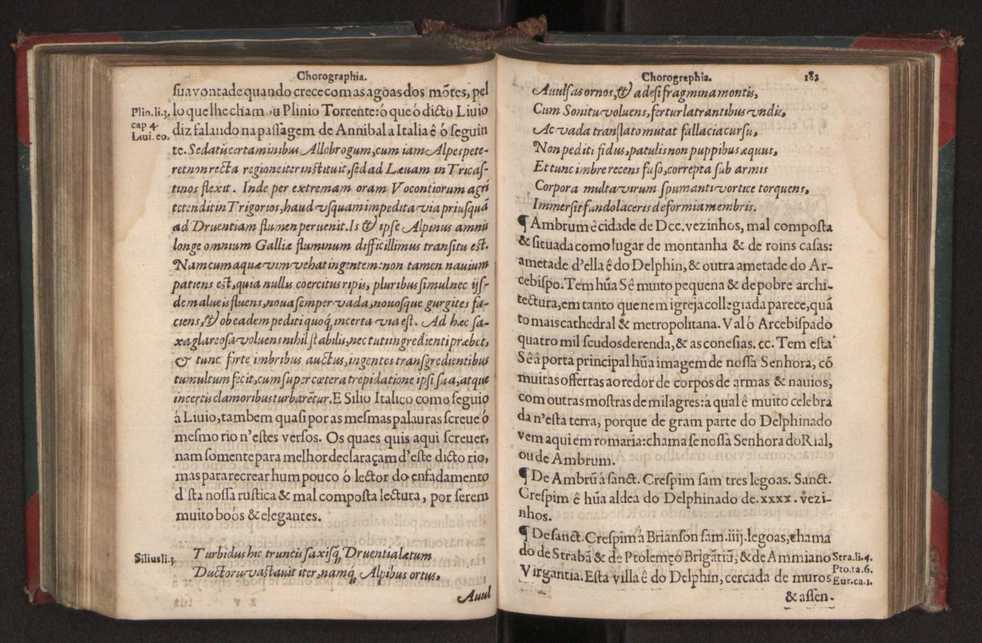 Chorographia.
sua vontade quando crece com as agoas dos mõtes, pel
Plin.li.3. lo que lhe cham ou Plinio Torrente: ó que ó dicto Liuio
cap 4. diz falando na passagem de Annibal a Italia ê ó seguin
Laui. eo. te. Sedatis certaminibus Allobrogum, cum iam Alpes pete-
ret non recta regione iter instituit, sed ad Læuam in Tricas-
tinos flexit. Inde per extremam oram Vocontiorum agri
tetendit in Trigorios, haud vsquam impedita via priusquã
ad Druentiam flumen peruenit. Is & ipse Alpinus amnis
longe omnium Galliæ fluminum difficillimus transitu est.
Nam cum aquæ vim vehat ingentem: non tamen nauium
patiens est, quia nullis coercitus ripis, pluribus simul nec ijs-
dem alueis fluens, noua semper vada, nouosque gurgites fa-
ciens, & ob ea dem pediti quoq; incerta via est. Ad hæc sa-
xa glareosa voluens nihil stabile, nec tuti ingredienti præbet,
& tunc forte imbribus auctus, ingentes transgredientibus
tumultum fecit, cum super cætera trepidatione ipsi sua, atque
incertis clamoribus turbarẽtur. E Silio Italico como seguio
á Liuio, tambem quasi por as mesmas palauras screue ó
mesmo rio n'estes versos. Os quaes quis aqui screuer,
nam somente para melhor declaraçam d'este dicto rio,
mas para recrear hum pouco ó lector do enfadamento
d sta nossa rustica & mal composta lectura, por serem
muito boós & elegantes.
Silius li.3 Turbidus hic truncis saxisq; Druentia lætum
Ductoris vastauit iter, namq; Alpibus ortus,
Auul
Chorographia. 182
Auulsas ornos, & adesi fragmina montis,
Cum Sonitu voluens, fertur latrantibus vndis,
Ac vada translato mutat fallacia cursu,
Non pediti fidus, patulis non puppibus æquus,
Et tunc imbre recens fuso, correpta sub armis
Corpora multa virum spumanti vortice torquens,
Immersit fundo laceris deformia membris.
¶ Ambrum ê cidade de Dcc. vezinhos, mal composta
& situada como lugar de montanha & de roins casas:
ametade d'ella ê do Delphin, & outra ametade do Ar-
cebispo. Tem hũa Sé muito pequena & de pobre archi-
tectura, em tanto que nem igreja collegiada parece, quã
to mais cathedral & metropolitana. Val ó Arcebispado
quatro mil scudos de renda, & as conesias. cc. Tem esta
Sê â porta principal hũa imagem de nossa Senhora, cõ
muitas offertas ao redor de corpos de armas & nauios,
com outras mostras de milagres: á qual ê muito celebra
da n'esta terra, porque de gram parte do Delphinado
vem aqui em romaria: chama se nossa Senhora do Rial,
ou de Ambrum.
¶ De Ambrũ â sanct. Crespim sam tres legoas. Sanct.
Crespim ê hũa aldea do Delphinado de. xxxx. vezi-
nhos.
¶ De sanct. Crespim â Brianson sam. iiij. legoas, chama
do de Strabã & de Ptolemęo Brigãtiũ, & de Ammiano Stra.li.4.
Virgantia. Esta villa ê do Delphin, cercada de muros Pto.ta.6.
Eur.ca.1.
& assen-